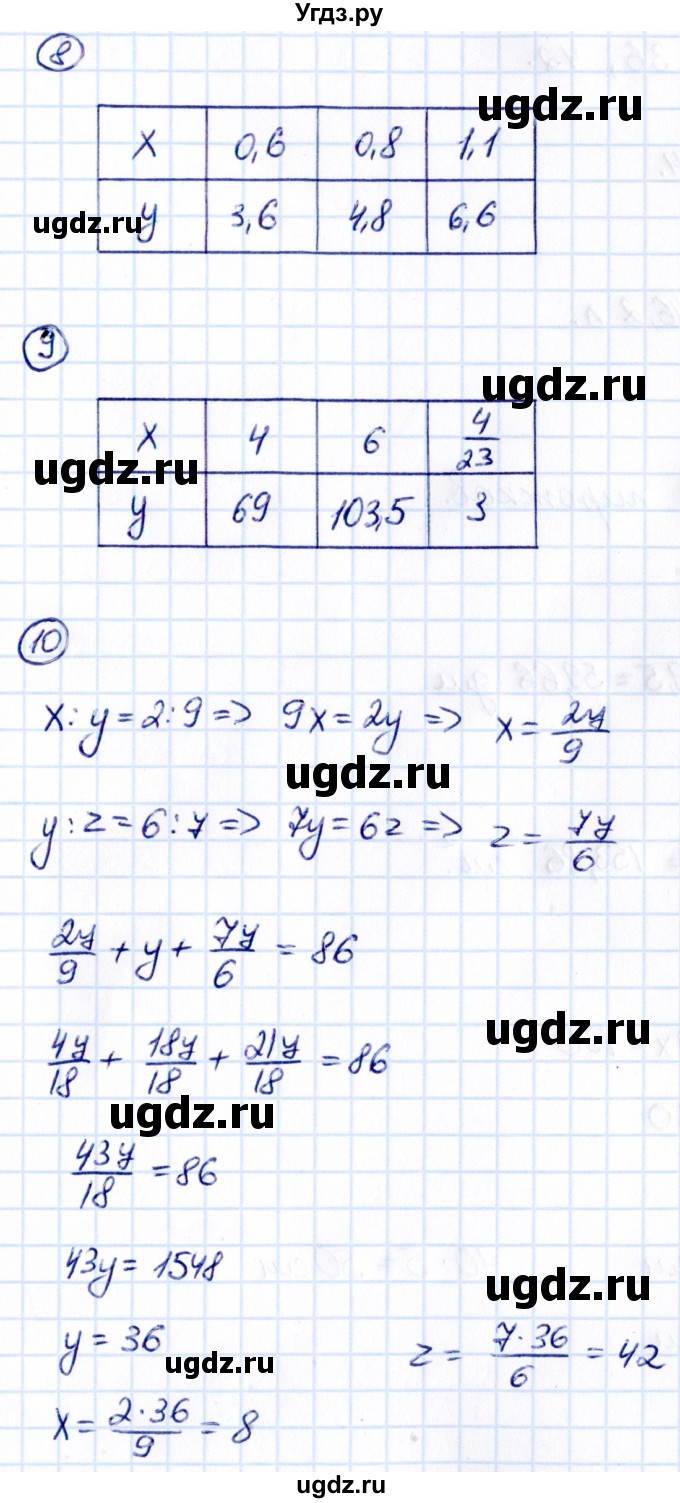 Угдз.ру
8
ugdz.ru
x 0,6 0,8 1,1
ugdz.ru
y 3,6 4,8 6,6
9
ugdz.ru
x 4 6 4/23
ugdz.ru
y 69 103,5 3
10
x:y=2:9 => 9x=2y => x= 2y/9
ugdz.ru
y:z=6:7 => 7y=6z => z= 7y/6
2y/9 + y + 7y/6 = 86
ugdz.ru
4y/18 + 18y/18 + 21y/18 = 86
ugdz.ru
43y/18 = 86
43y= 1548
ugdz.ru
y = 36 z = 7·36/6 = 42
ugdz.ru
x= 2·36/9 = 8
ugdz.ru